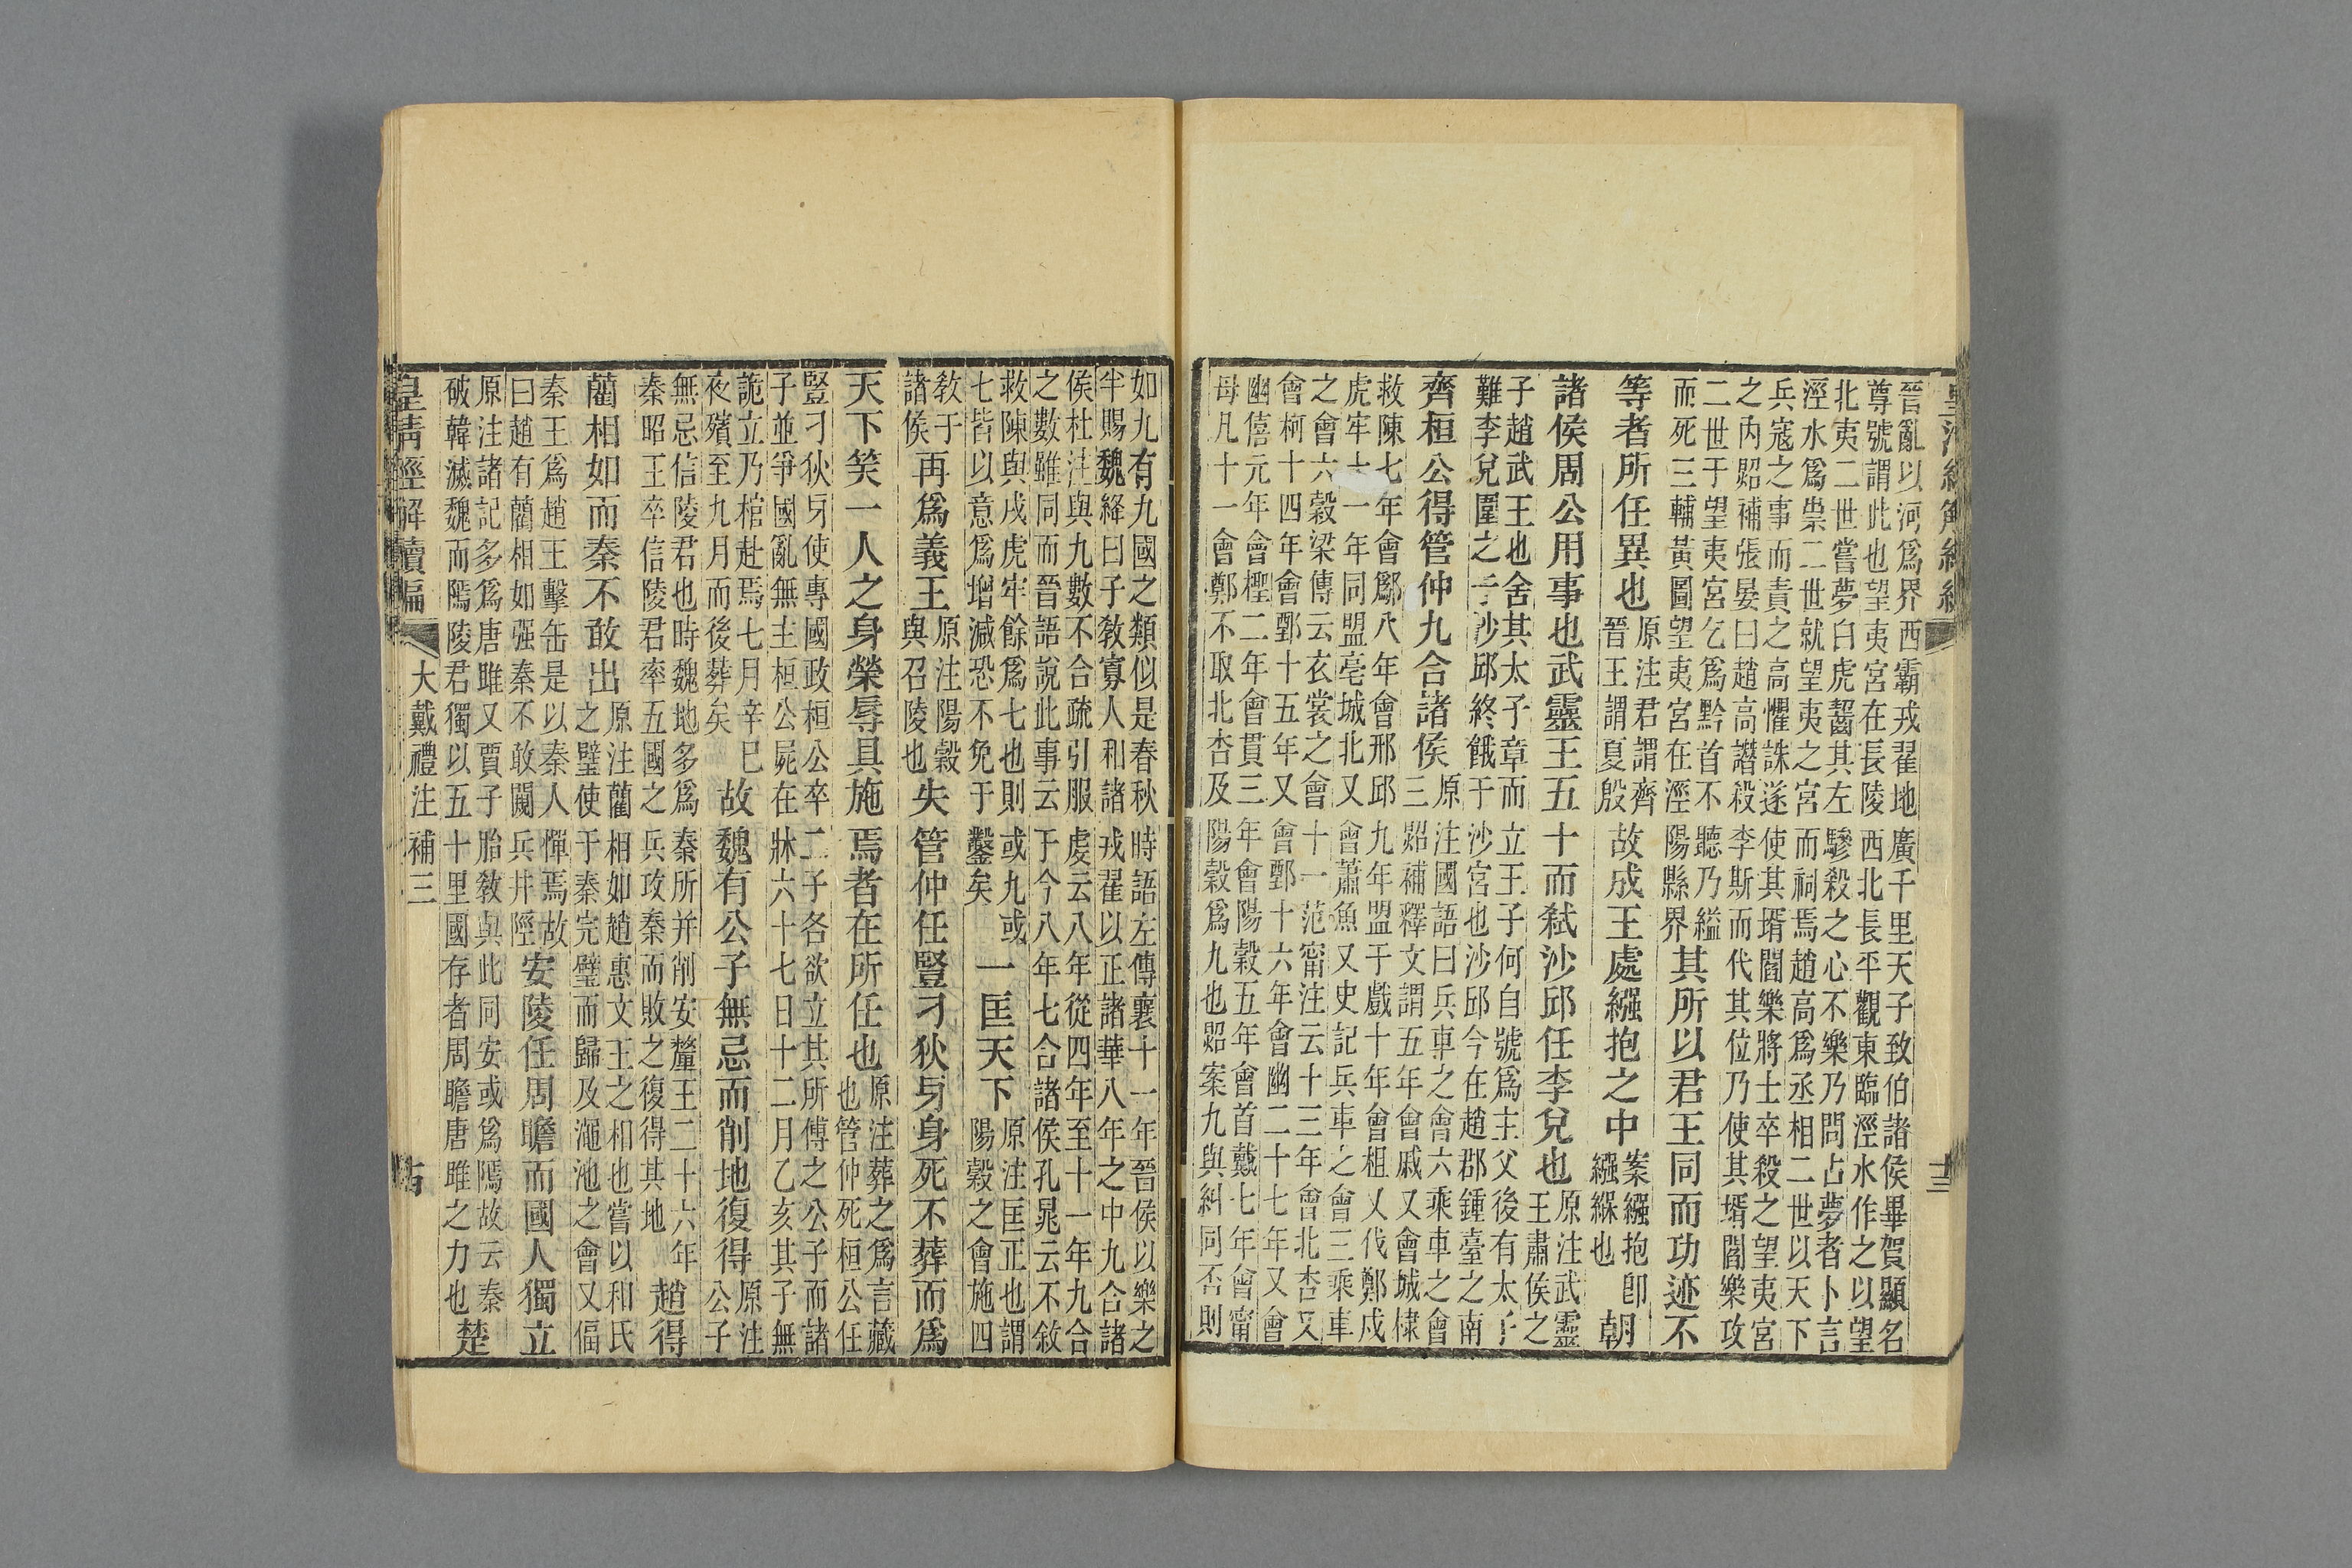 晉亂以河爲界西霸戎翟地廣千里天子致伯諸侯畢賀顯名
尊號謂此也望夷宮在長陵西北長平觀東臨涇水作之以望
北夷二世嘗夢白虎齧其左驂殺之心不樂乃問占夢者卜言
涇水爲祟二世就望夷之宮而祠焉趙高爲丞相二世以天下
兵寇之事而責之高懼誅遂使其壻閻樂將士卒殺之望夷宮
之內炤補張晏曰趙高譖殺李斯而代其位乃使其壻閻樂攻
二世于望夷宮乞爲黔首不聽乃縊
而死三輔黃圖望夷宮在涇陽縣界
其所以君王同而功迹不
等者所任異也
原注君謂齊
晉王謂夏殷
故成王處繈抱之中
案繈抱卽
繈緥也
朝
諸侯周公用事也武靈王五十而弑沙邱任李兌也
原注武靈
王肅侯之
子趙武王也舍其太子章而立王子何自號爲主父後有太子
難李兌圍之于沙邱終餓于沙宮也沙邱今在趙郡鍾臺之南
齊桓公得管仲九合諸侯
原注國語曰兵車之會六乘車之會
三炤補釋文謂五年會戚又會城棣
救陳七年會鄬八年會邢邱九年盟于戲十年會柤乂伐鄭戍
虎牢十一年同盟亳城北又會蕭魚又史記兵車之會三乘車
之會六穀梁傳云衣裳之會十一范甯注云十三年會北杏又
會柯十四年會鄄十五年又會鄄十六年會幽二十七年又會
幽僖元年會檉二年會貫三年會陽穀五年會首戴七年會甯
母凡十一會鄭不取北杏及陽穀爲九也炤案九與糾同否則
如九有九國之類似是春秋時語左傳襄十一年晉侯以樂之
半賜魏絳曰子敎寡人和諸戎翟以正諸華八年之中九合諸
侯杜注與九數不合疏引服虔云八年從四年至十一年九合
之數雖同而晉語說此事云于今八年七合諸侯孔晁云不敘
救陳與戍虎牢餘爲七也則或九或
七皆以意爲增減恐不免于鑿矣
一匡天下
原注匡正也謂
陽穀之會施四
敎于
諸侯
再爲義王
原注陽穀
與召陵也
失管仲任豎刁狄牙身死不葬而爲
天下笑一人之身榮辱具施焉者在所任也
原注葬之爲言藏
也管仲死桓公任
豎刁狄牙使專國政桓公卒二子各欲立其所傅之公子而諸
子並爭國亂無主桓公屍在牀六十七日十二月乙亥其子無
詭立乃棺赴焉七月辛巳
夜殯至九月而後葬矣
故魏有公子無忌而削地復得
原注
公子
無忌信陵君也時魏地多爲秦所并削安釐王二十六年
秦昭王卒信陵君率五國之兵攻秦而敗之復得其地
趙得
藺相如而秦不敢出
原注藺相如趙惠文王之相也嘗以和氏
之璧使于秦完璧而歸及澠池之會又偪
秦王爲趙王擊缶是以秦人憚焉故
曰趙有藺相如强秦不敢闚兵井陘
安陵任周瞻而國人獨立
原注諸記多爲唐雎又賈子胎敎與此同安或爲隖故云秦
破韓滅魏而隖陵君獨以五十里國存者周瞻唐雎之力也
楚
皇清經解續編
大戴禮注補三